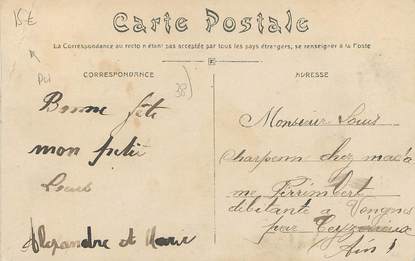 15€
Carte Postale
La Correspondance au recto n'étant pas acceptée par tous les pays étrangers, se renseigner à la Poste
CORRESPONDANCE
ADRESSE
38
Bonne fête
mon petit
Louis
Alexandre et Marie
Monsieur Louis
charpenn chez mada
me Pirrimbert
débitante a Vongnes
par Ceyzérieux
Ain